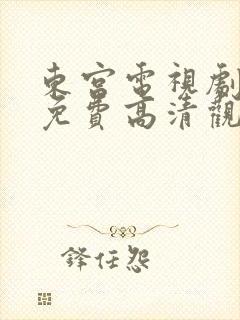 東宮電視劇
免費高清觀
鋒任怨